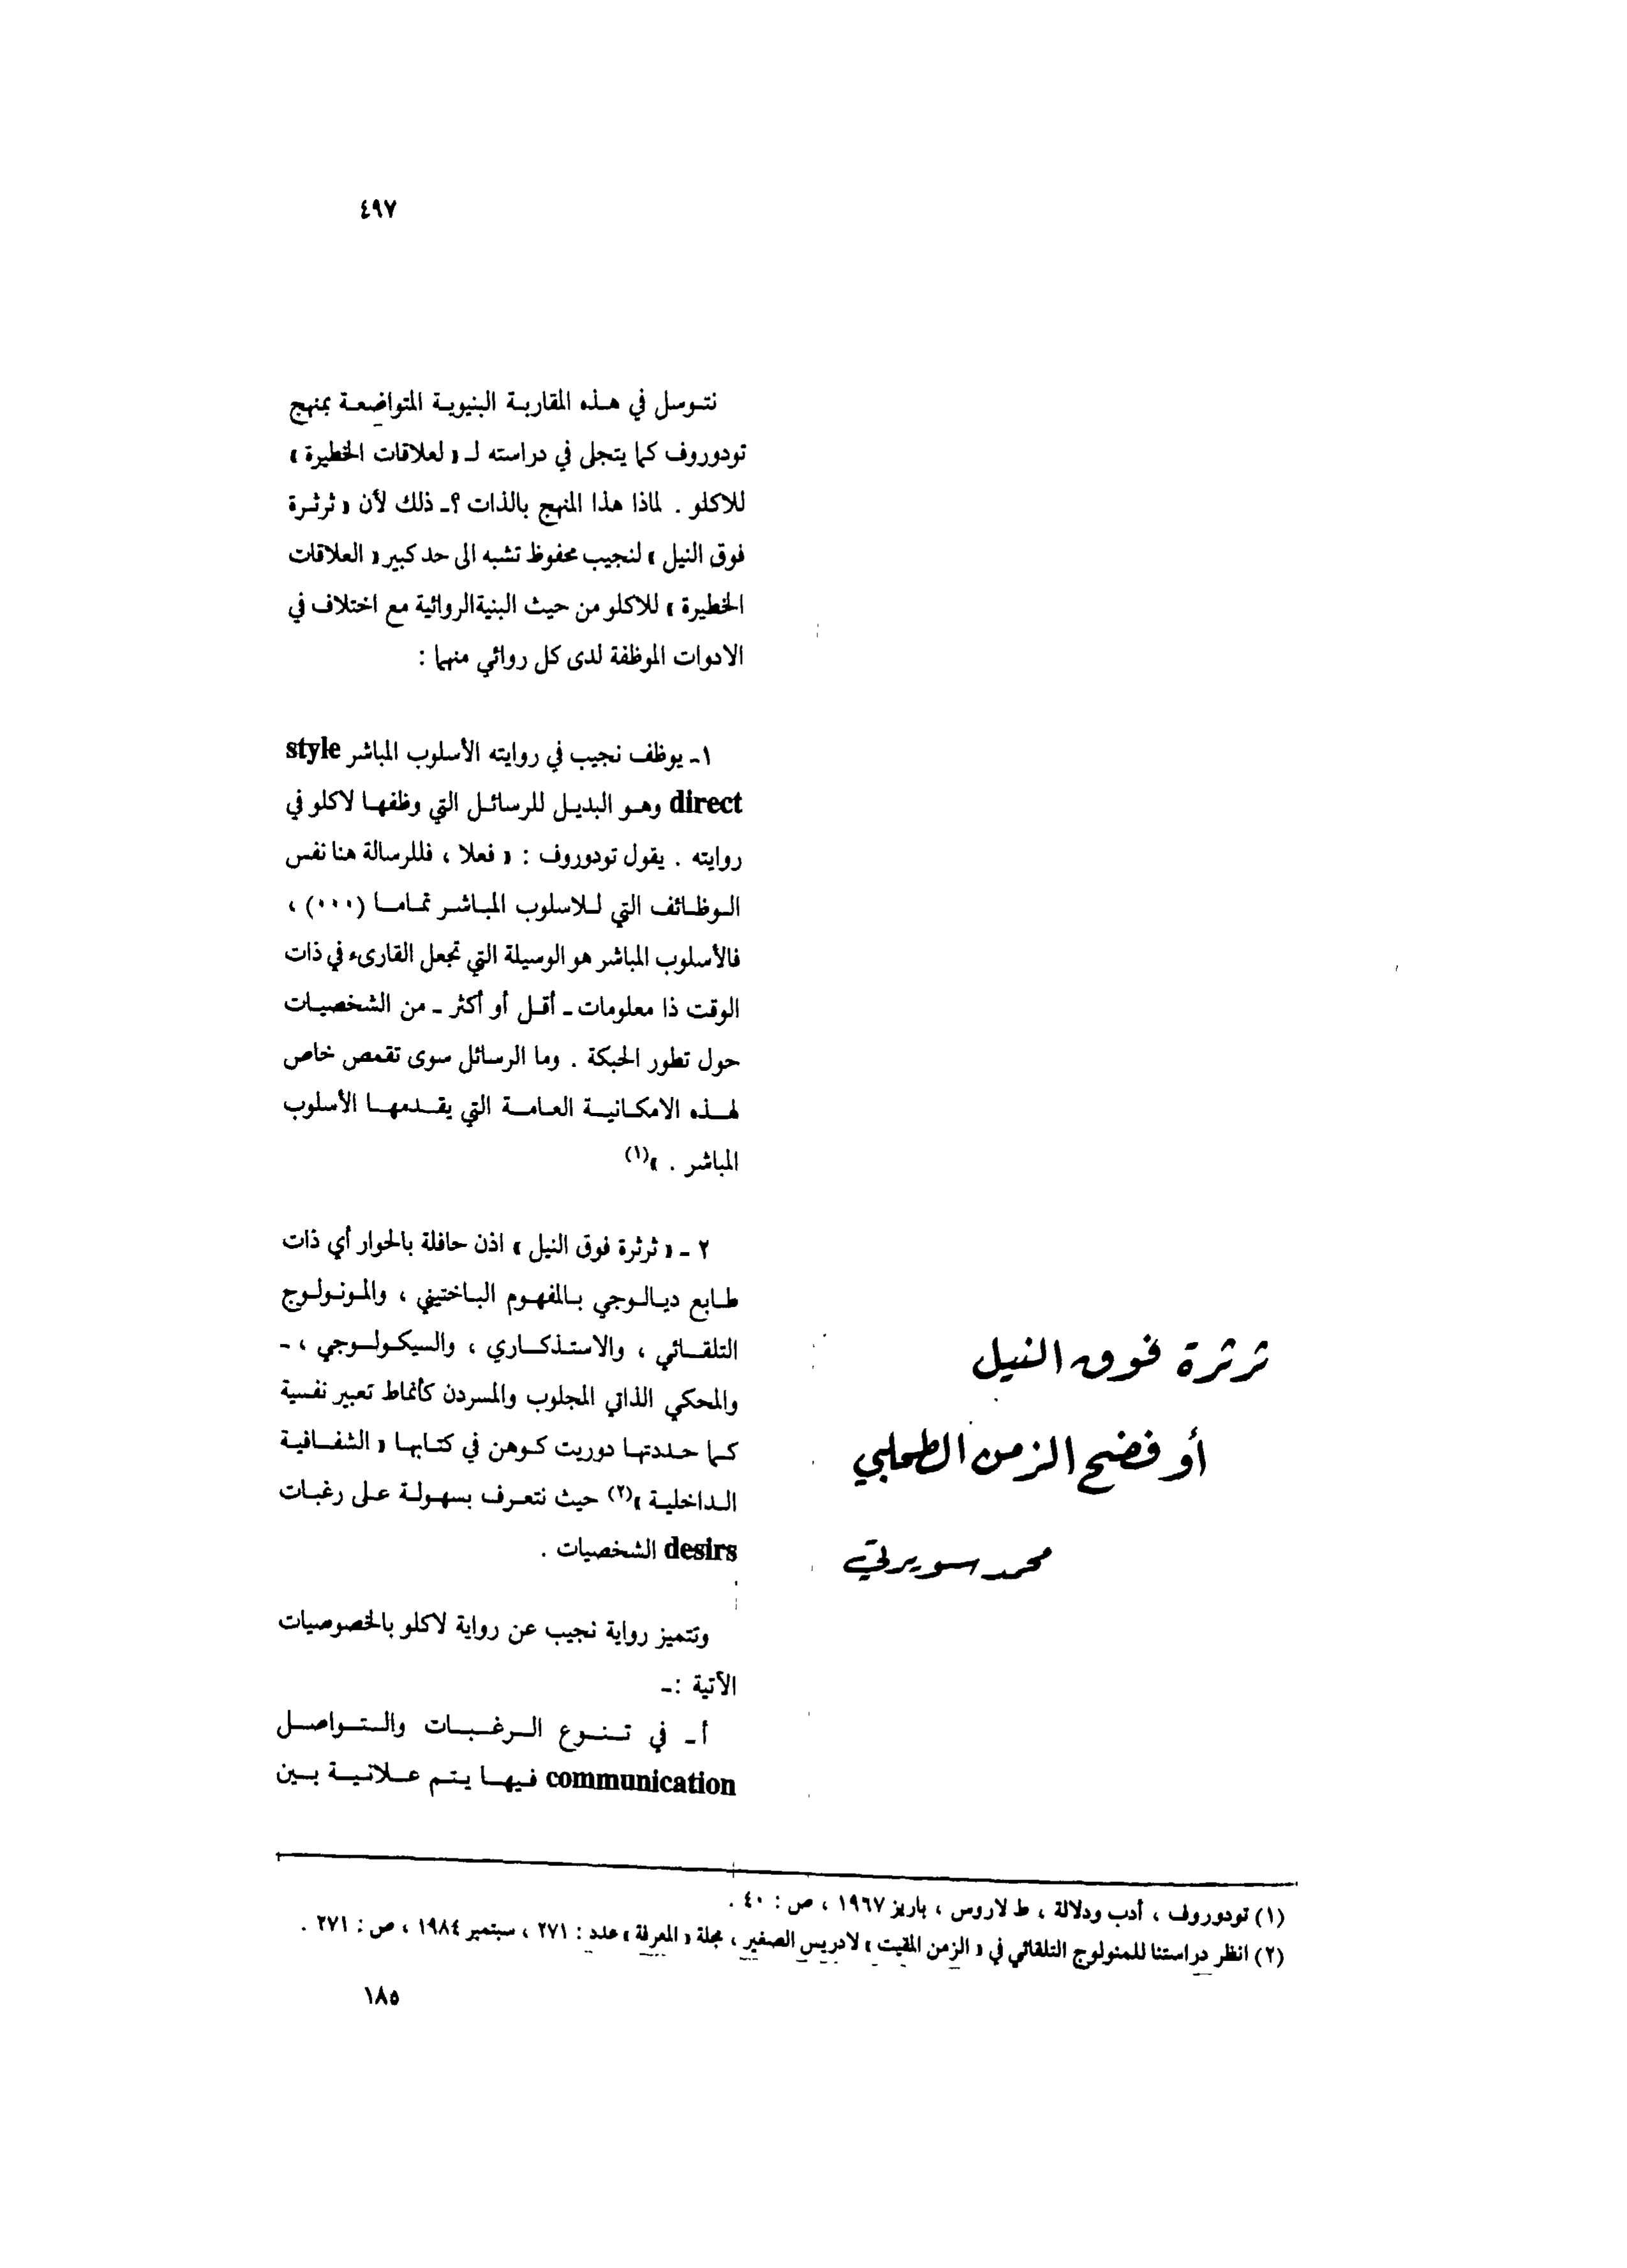 ٤٩٧
ثرثرة فوق النيل
أو فضح الزمن الطحلبي
محمد سويرتي
نتوسل في هذه المقاربة البنيوية المتواضعة بمنهج
تودوروف كما يتجلى في دراسته لـ « لعلاقات الخطيرة »
للاكلو . لماذا هذا المنهج بالذات ؟ـ ذلك لأن « ثرثرة
فوق النيل » لنجيب محفوظ تشبه الى حد كبير « العلاقات
الخطيرة » للاكلو من حيث البنية الروائية مع اختلاف في
الادوات الموظفة لدى كل روائي منهما :
١ـ يوظف نجيب في روايته الأسلوب المباشر style
direct وهو البديل للرسائل التي وظفها لاكلو في
روايته . يقول تودوروف : « فعلا ، فللرسالة هنا نفس
الوظائف التي للاسلوب المباشر تماما (٠٠٠) ،
فالأسلوب المباشر هو الوسيلة التي تجعل القارىء في ذات
الوقت ذا معلومات ـ أقل أو أكثر ـ من الشخصيات
حول تطور الحبكة . وما الرسائل سوى تقمص خاص
لهذه الامكانية العامة التي يقدمها الأسلوب
المباشر . »(١)
٢ ـ « ثرثرة فوق النيل » اذن حافلة بالحوار أي ذات
طابع ديالوجي بالمفهوم الباختيني ، والمونولوج
التلقائي ، والاستذكاري ، والسيكولوجي ، ـ
والمحكي الذاتي المجلوب والمسردن كأنماط تعبير نفسية
كما حددتها دوريت كوهن في كتابها « الشفافية
الداخلية »(٢) حيث نتعرف بسهولة على رغبات
desirs الشخصيات .
وتتميز رواية نجيب عن رواية لاكلو بالخصوصيات
الآتية :ـ
أ ـ في تنوع الرغبات والتواصل
communication فيها يتم علانية بين
(١) تودوروف ، أدب ودلالة ، ط لاروس ، باريز ١٩٦٧ ، ص : ٤٠ .
(٢) انظر دراستنا للمنولوج التلقائي في « الزمن المقيت » لادريس الصغير ، مجلة « المعرفة » عدد : ٢٧١ ، سبتمبر ١٩٨٤ ، ص : ٢٧١ .
١٨٥